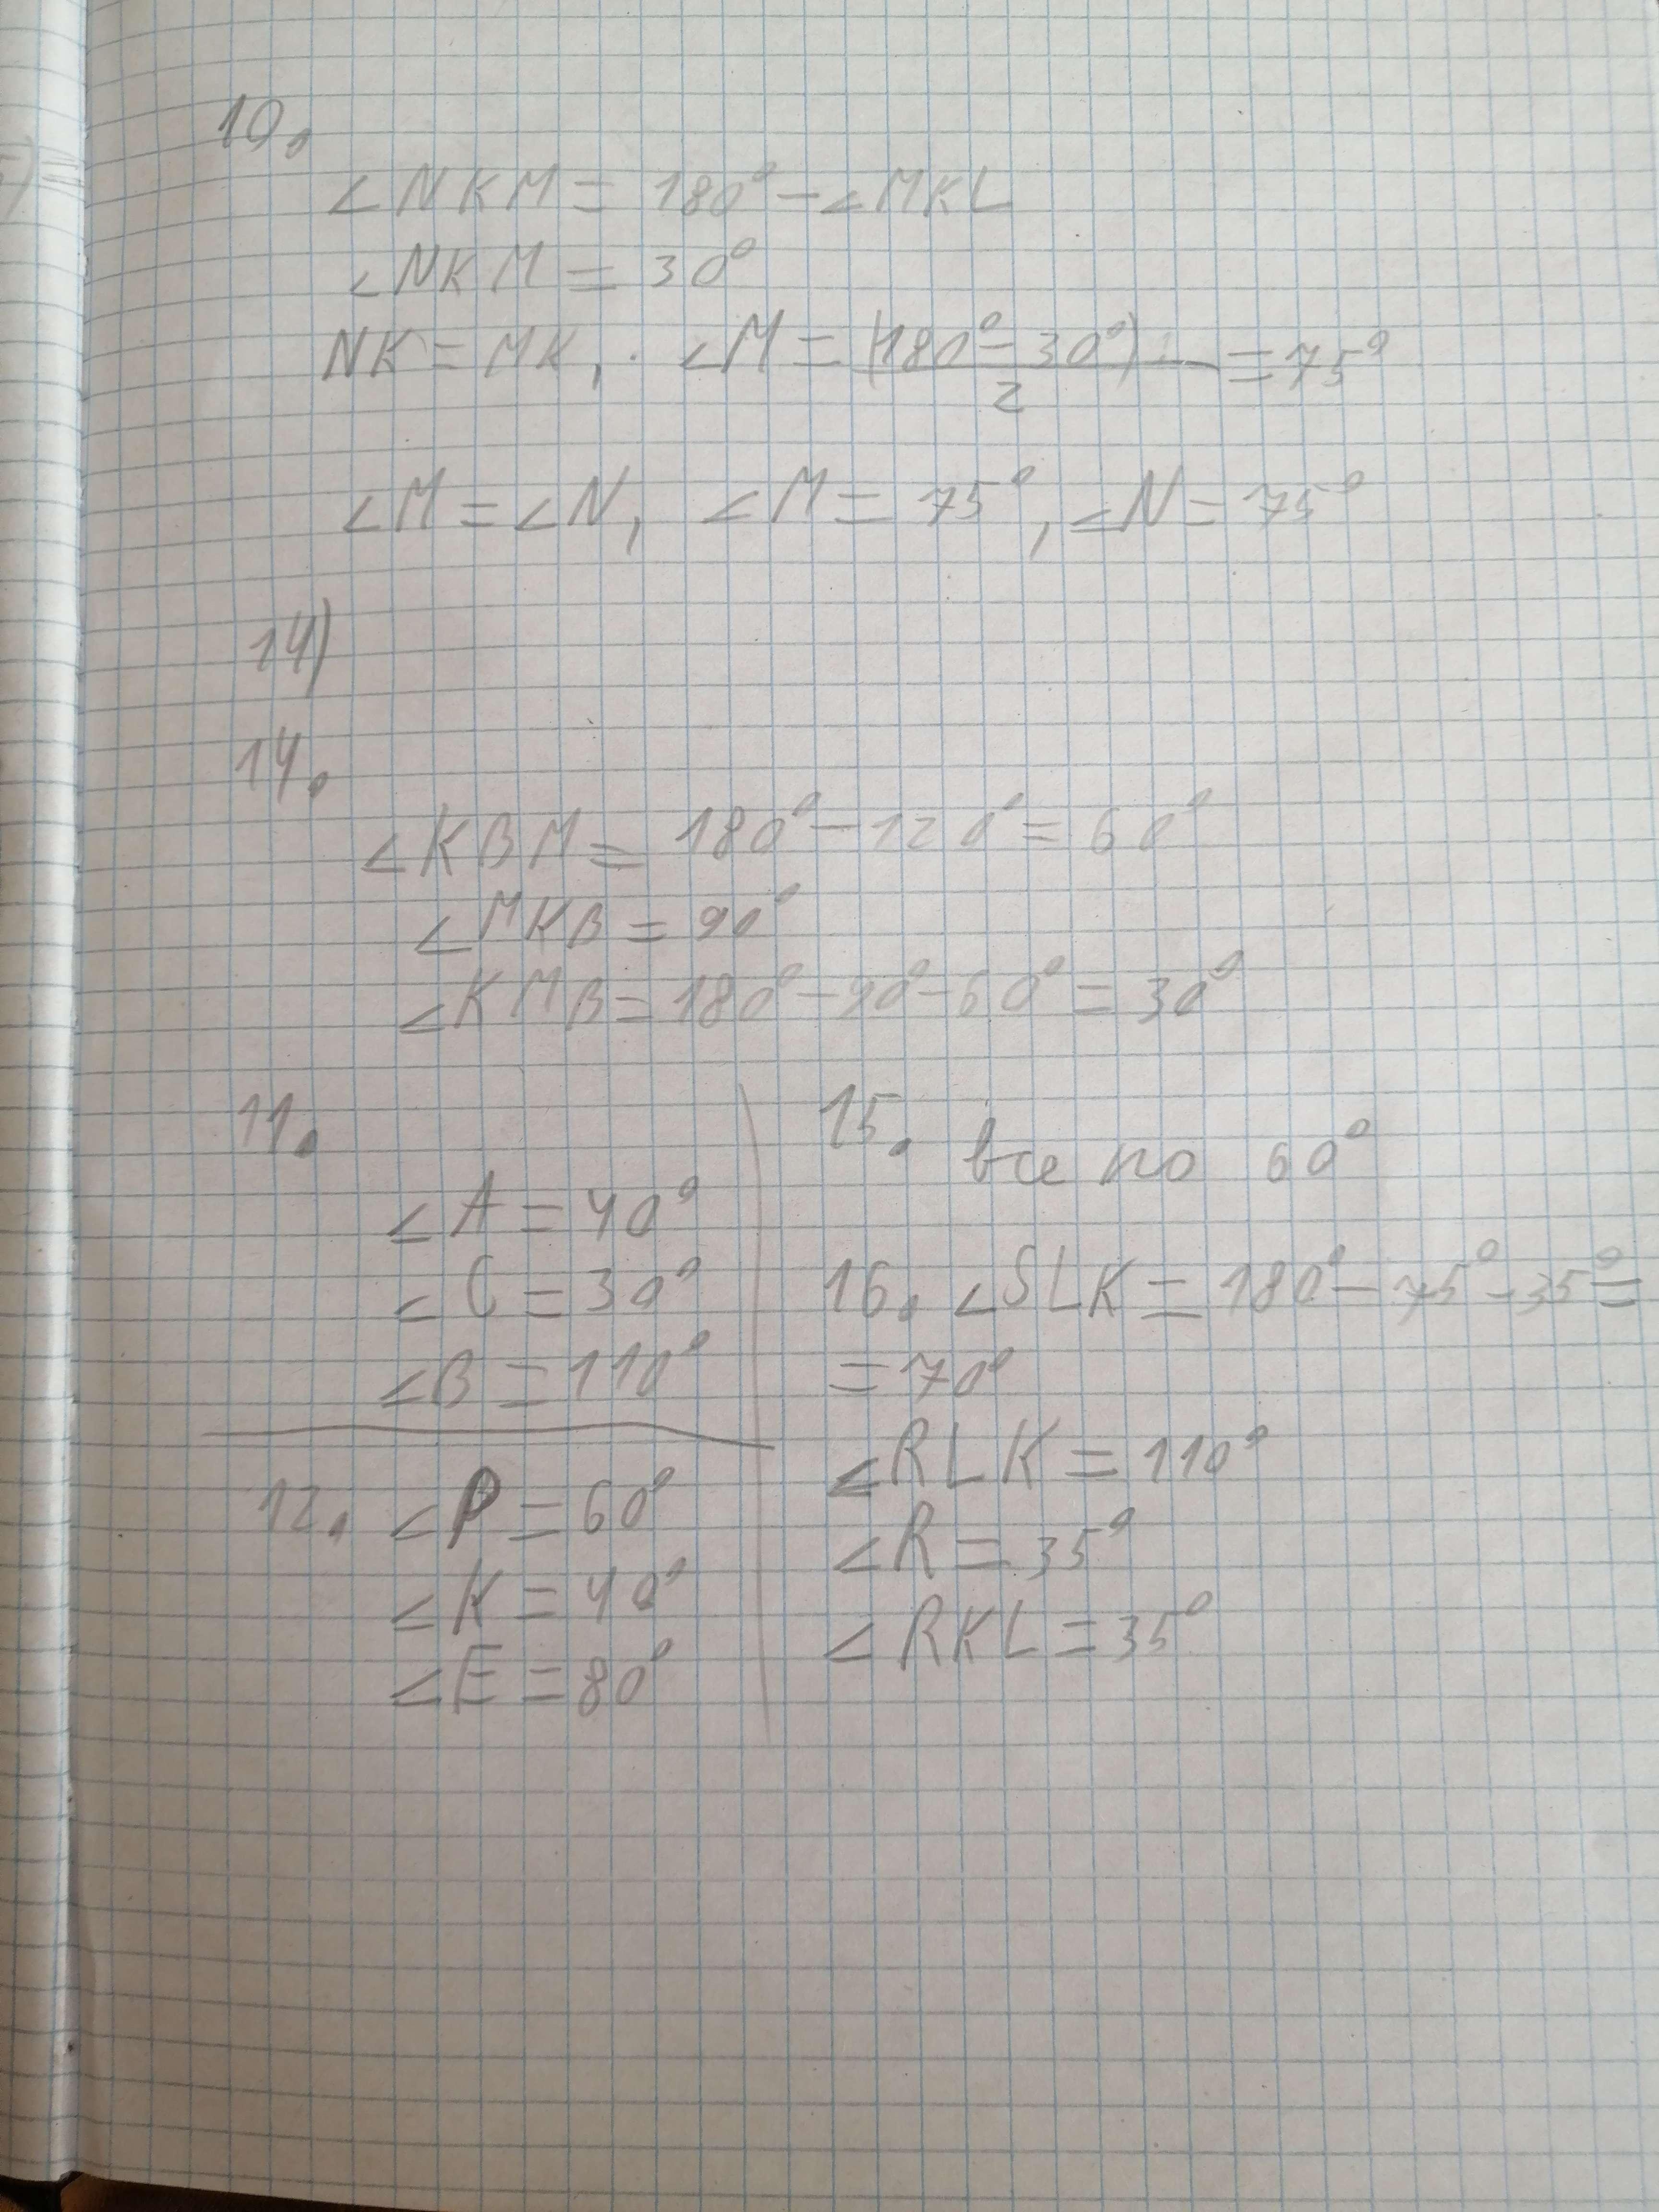 10.
∠NKM = 180° - ∠MKL
∠NKM = 30°
NK = MK, ∠M = (180° - 30°) / 2 = 75°
∠M = ∠N, ∠M = 75°, ∠N = 75°
14)
14.
∠KBM = 180° - 120° = 60°
∠MKB = 90°
∠KMB = 180° - 90° - 60° = 30°
11.
∠A = 40°
∠C = 30°
∠B = 110°
12. ∠P = 60°
∠K = 40°
∠E = 80°
15. все по 60°
16. ∠SLK = 180° - 75° - 35° =
= 70°
∠RLK = 110°
∠R = 35°
∠RKL = 35°